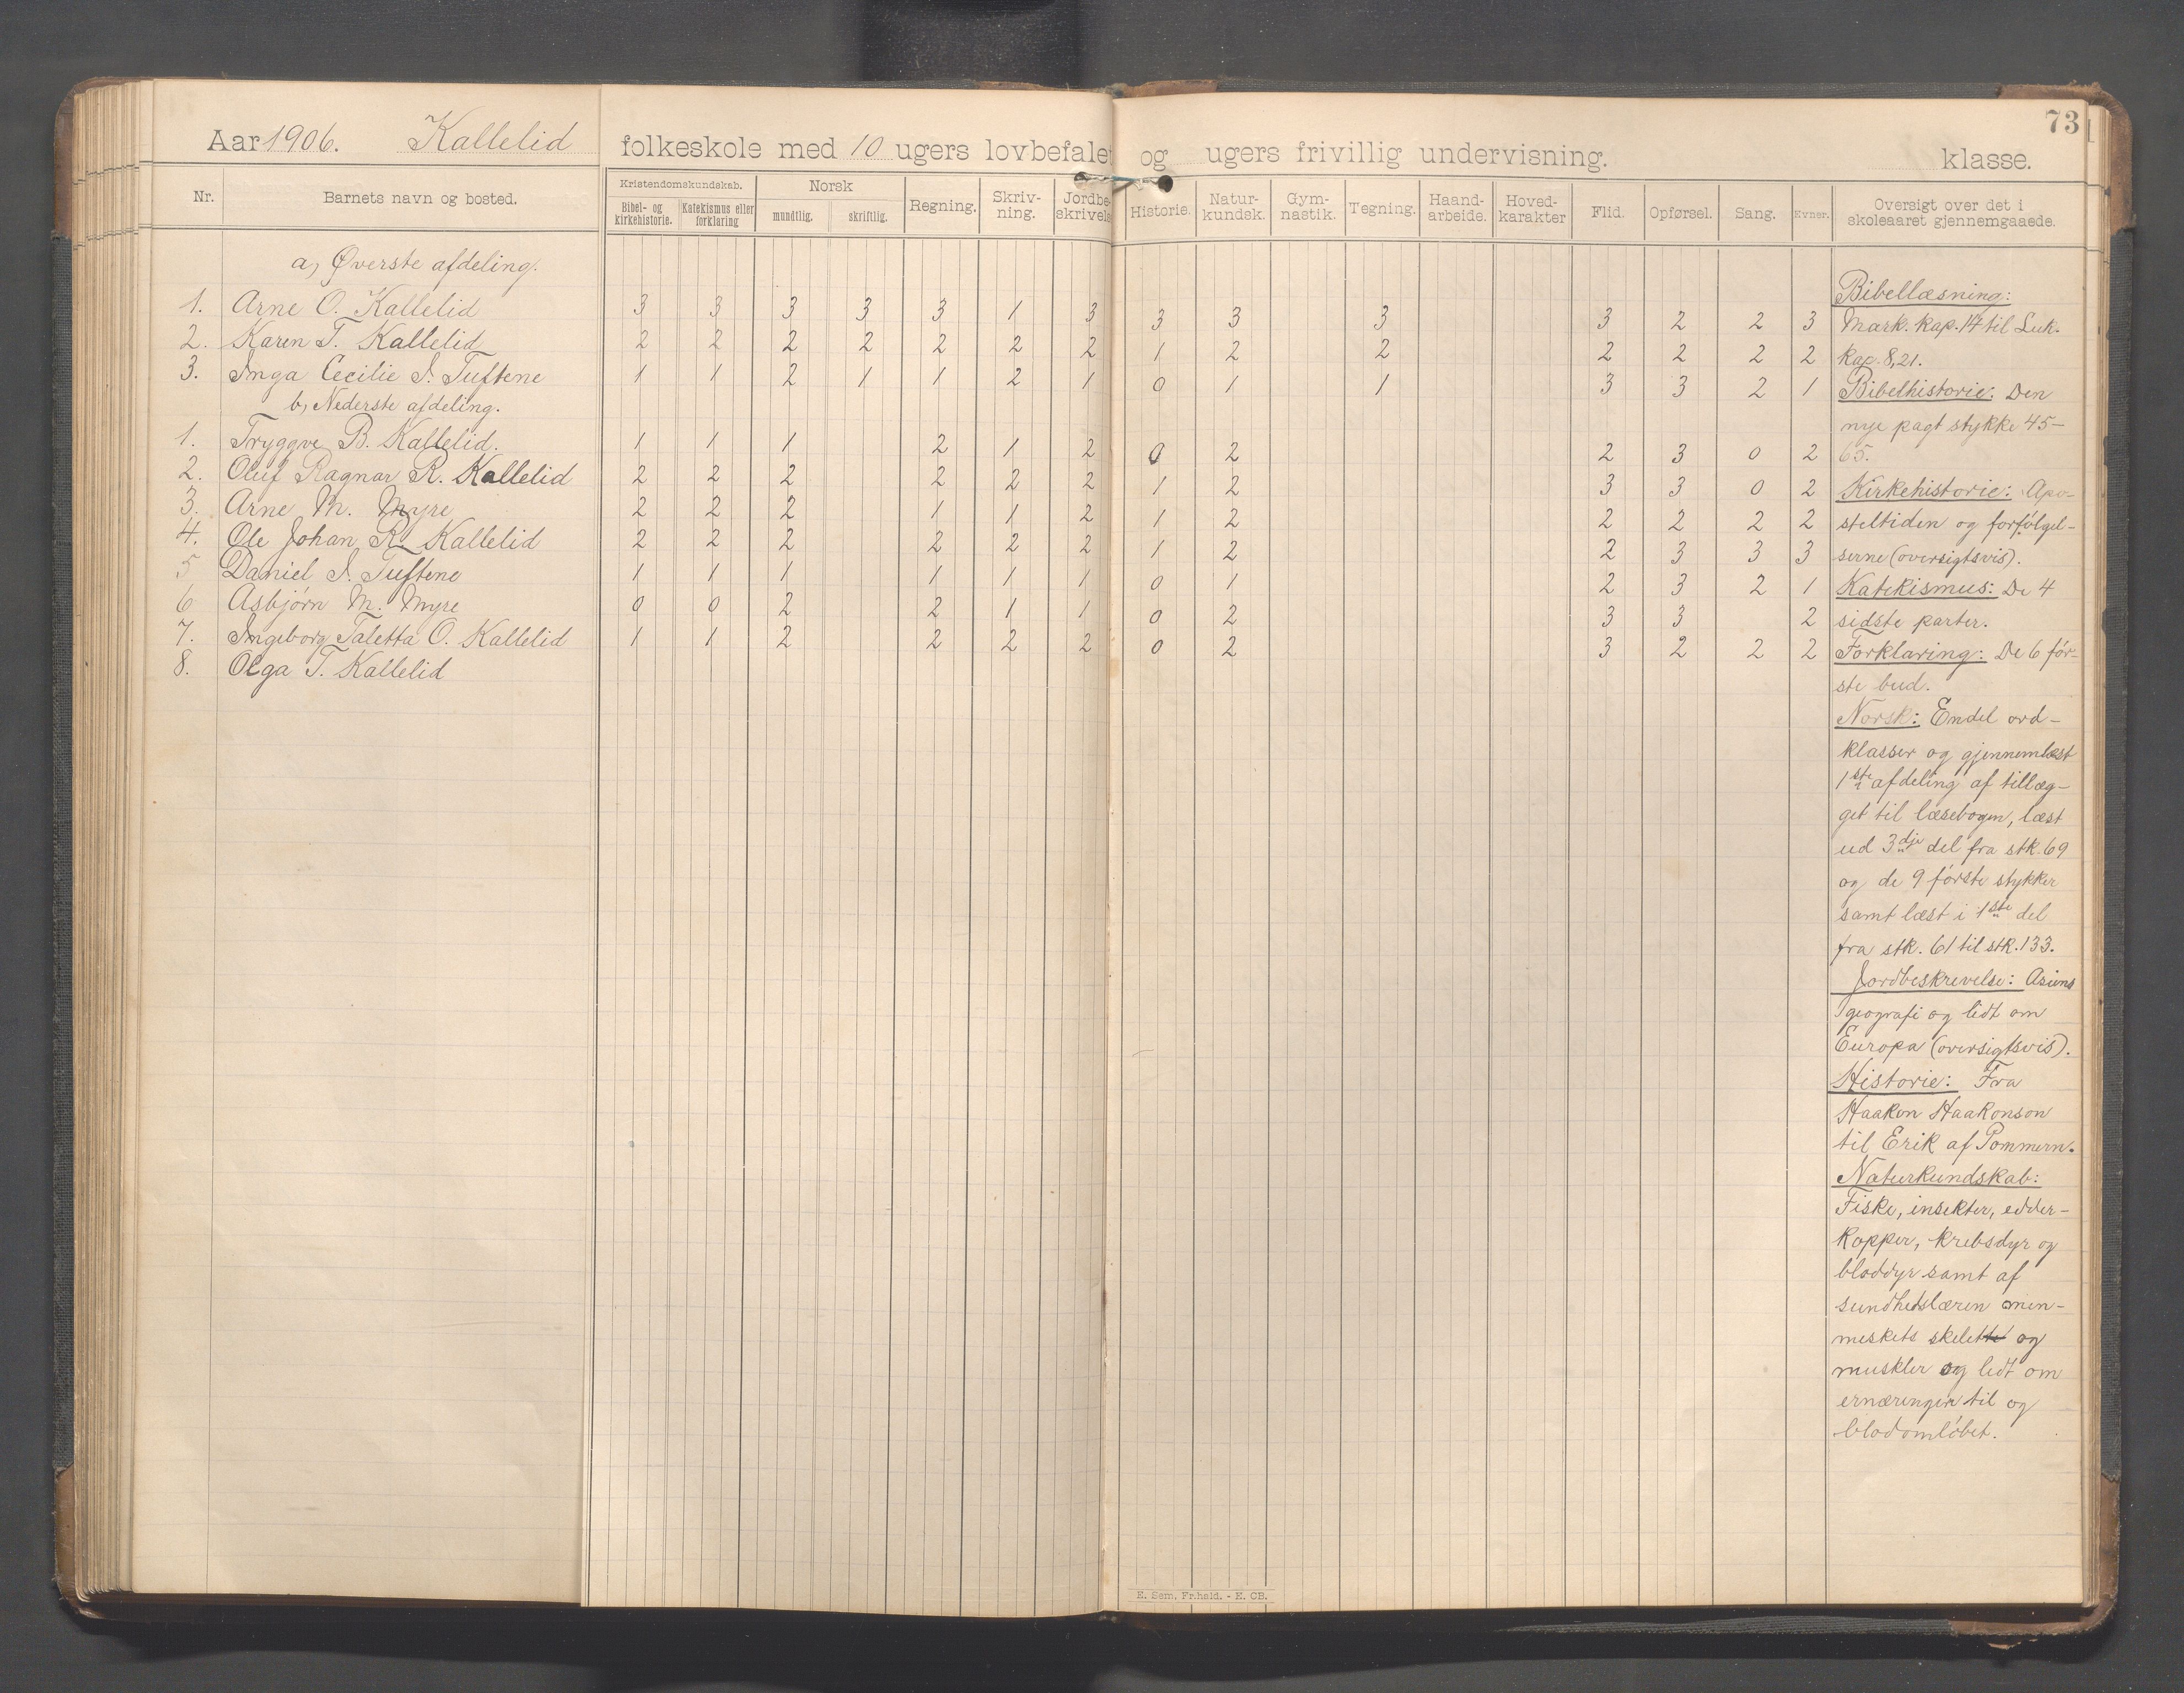 73
Aar 1906. Kallelid folkeskole med 10 ugers lovbefalet og ugers frivillig undervisning. klasse.
Nr. Barnets navn og bosted. Kristendomskundskab. Bibel- og kirkehistorie. Katekismus eller forklaring Norsk mundtlig. skriftlig. Regning. Skriv-ning. Jordbe-skrivels Historie. Natur-kundsk. Gym-nastik. Tegning. Haand-arbeide. Hoved-karakter Flid. Opførsel. Sang. Evner. Oversigt over det i skoleaaret gjennemgaaede.
a, Øverste afdeling.
1. Arne O. Kallelid 3 3 3 3 3 1 3 3 3 3 3 2 2 3
2. Karen T. Kallelid 2 2 2 2 2 2 2 1 2 2 2 2 2 2
3. Inga Cecilie I. Tuftene 1 1 2 1 1 2 1 0 1 1 3 3 2 1
b, Nederste afdeling.
1. Tryggve B. Kallelid. 1 1 1 2 1 2 0 2 2 3 0 2
2. Oluf Ragnar R. Kallelid 2 2 2 2 2 2 1 2 3 3 0 2
3. Arne M. Myre 2 2 2 1 1 2 1 2 2 2 2 2
4. Ole Johan R. Kallelid 2 2 2 2 2 2 1 2 2 3 3 3
5 Daniel I. Tuftene 1 1 1 1 1 1 0 1 2 3 2 1
6 Asbjørn M. Myre 0 0 2 2 1 1 0 2 3 3 2
7. Ingeborg Taletta O. Kallelid 1 1 2 2 2 2 0 2 3 2 2 2
8. Olga T. Kallelid
Bibellæsning:
Mark. kap. 14 til Luk.
kap. 8,21.
Bibelhistorie: Den
nye pagt stykke 45-
65.
Kirkehistorie: Apo-
steltiden og forfølgel-
serne (oversigtsvis).
Katekismus: De 4
sidste parter.
Forklaring: De 6 før-
ste bud.
Norsk: Endel ord-
klasser og gjennemlæst
1ste afdeling af tillæg-
get til læsebogen, læst
ud 3dje del fra stk. 69
og de 9 første stykker
samt læst i 1ste del
fra stk. 61 til stk. 133.
Jordbeskrevelse: Asiens
geografi og lidt om
Europa (oversigtsvis).
Historie: Fra
Haakon Haakonson
til Erik af Pommern.
Naturkundskab:
Fiske, insekter, edder-
kopper, krebsdyr og
bløddyr samt af
sundhedslæren men-
neskets skelette og
muskler og lidt om
ernæringen til og
blodomløbet.
E. Sem, Fr.hald. - E. CB.